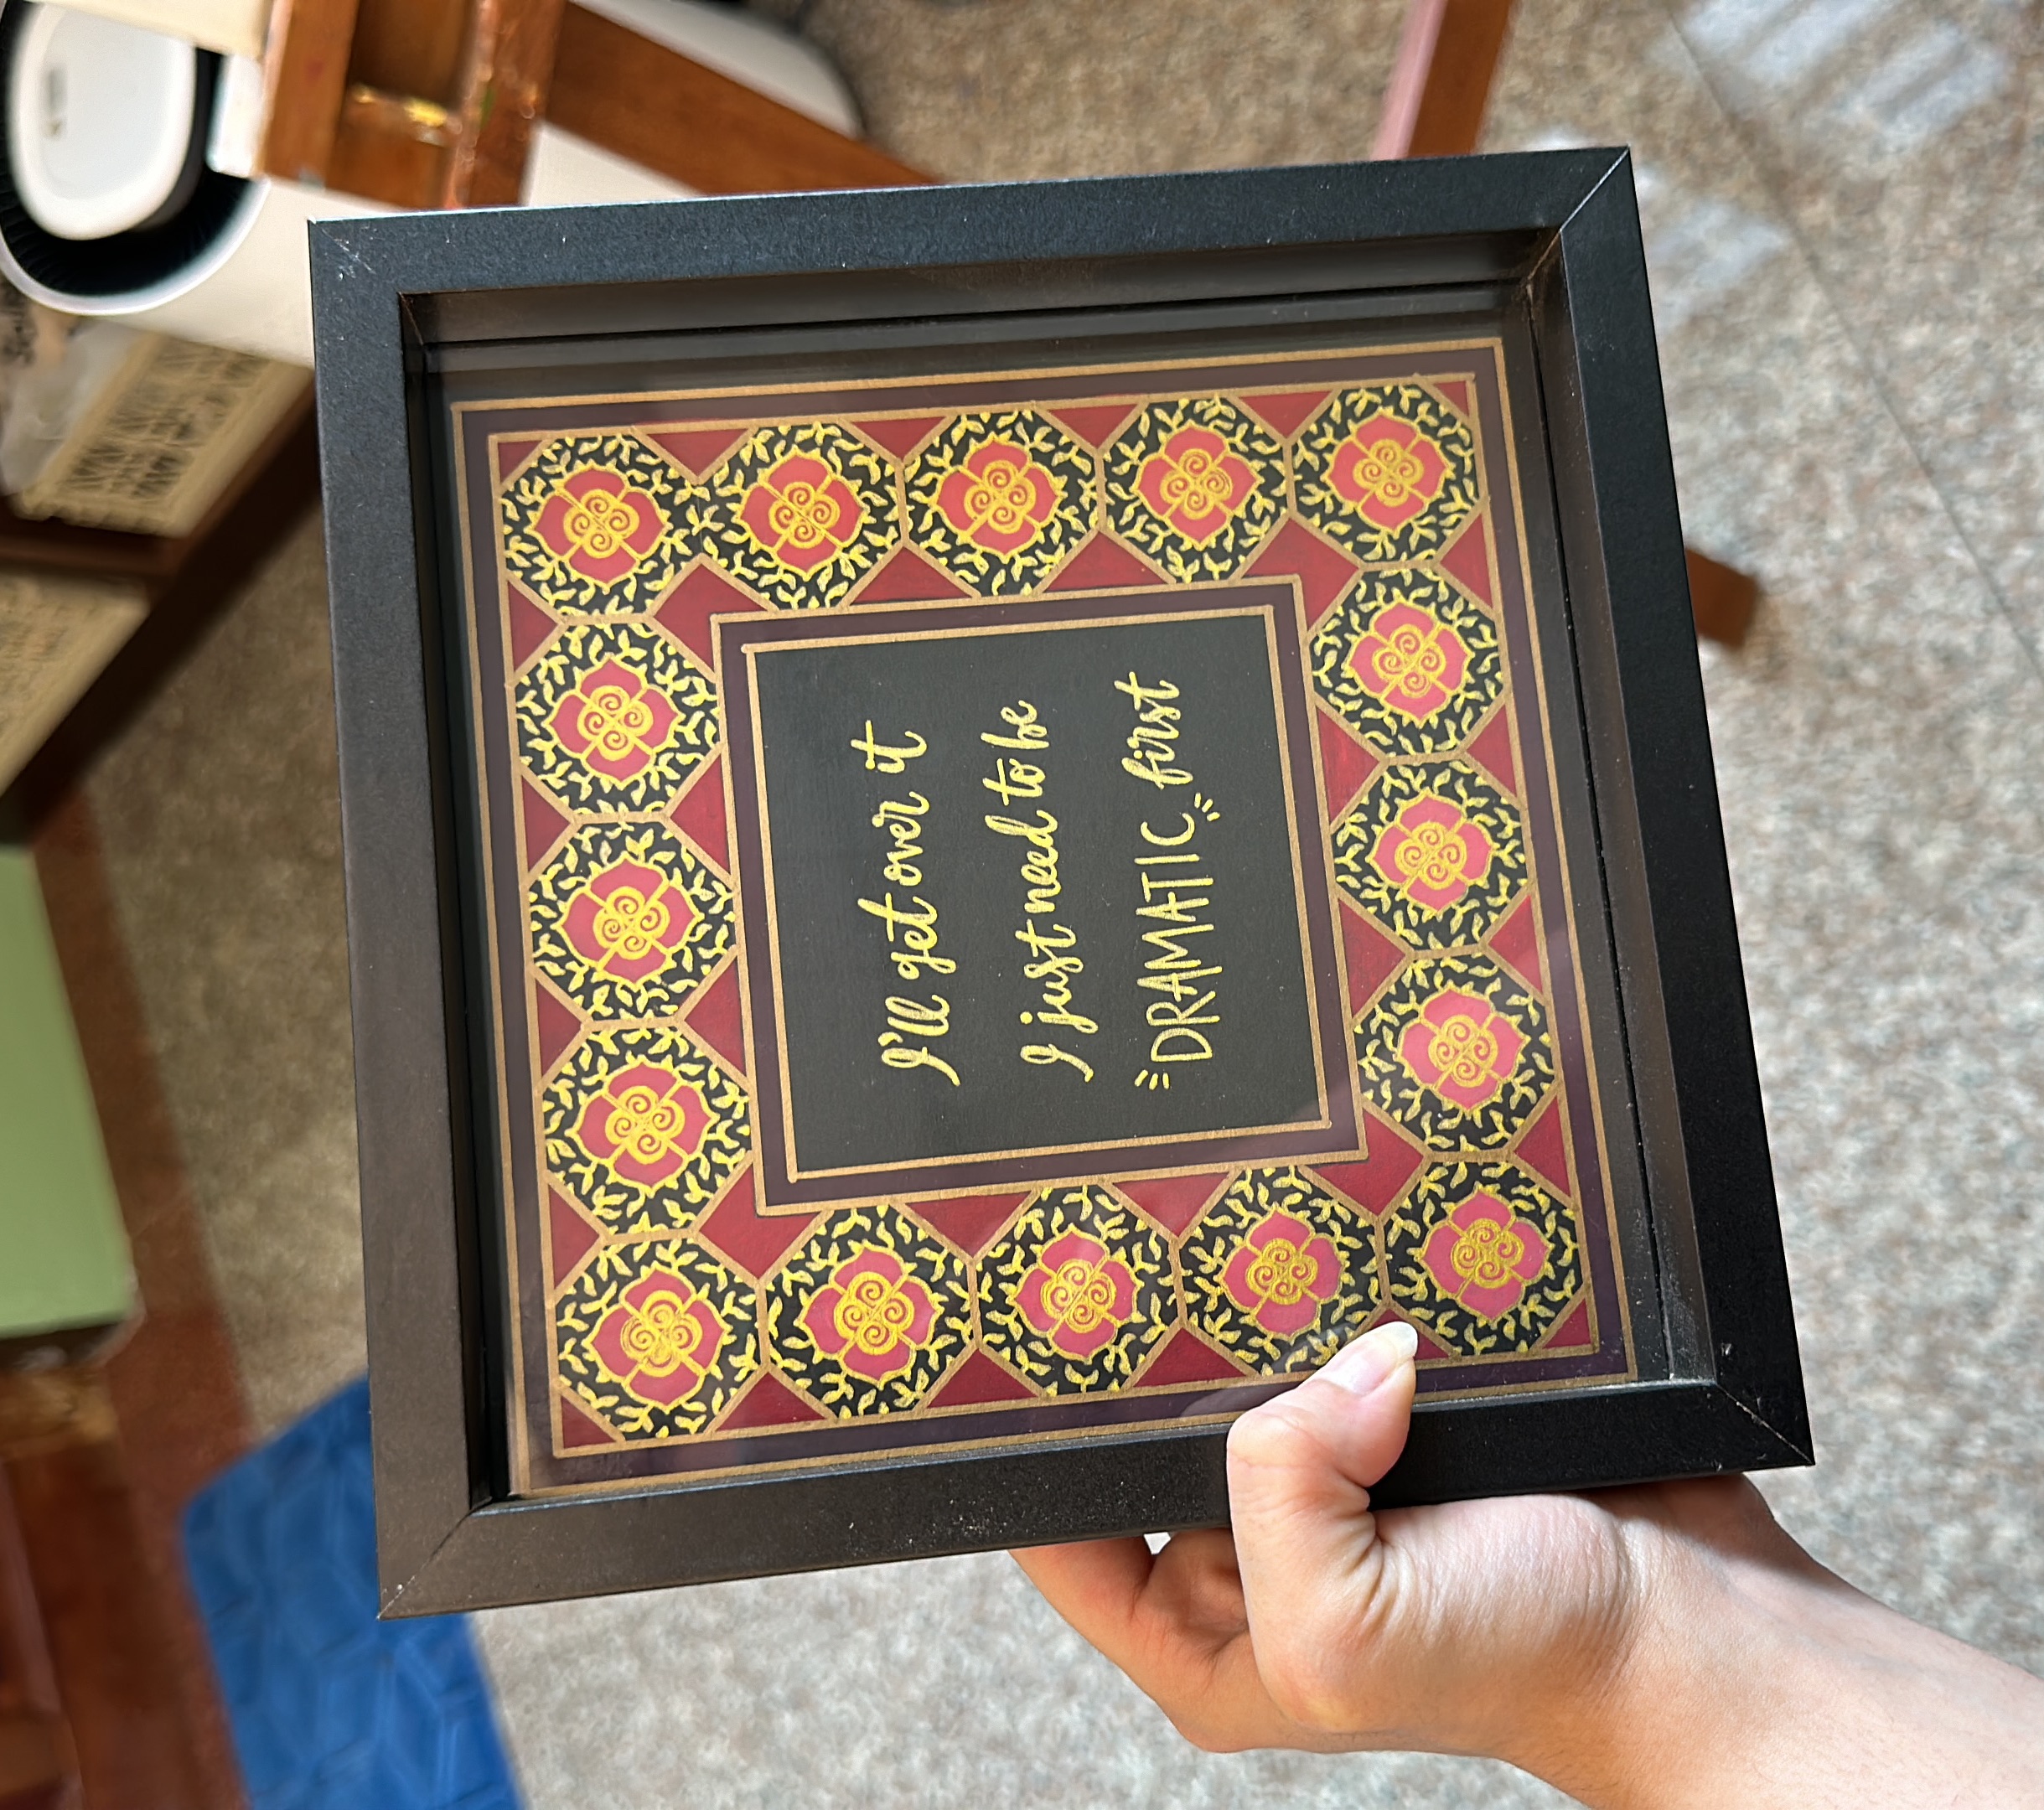 I'll get over it
I just need to be
"DRAMATIC" first